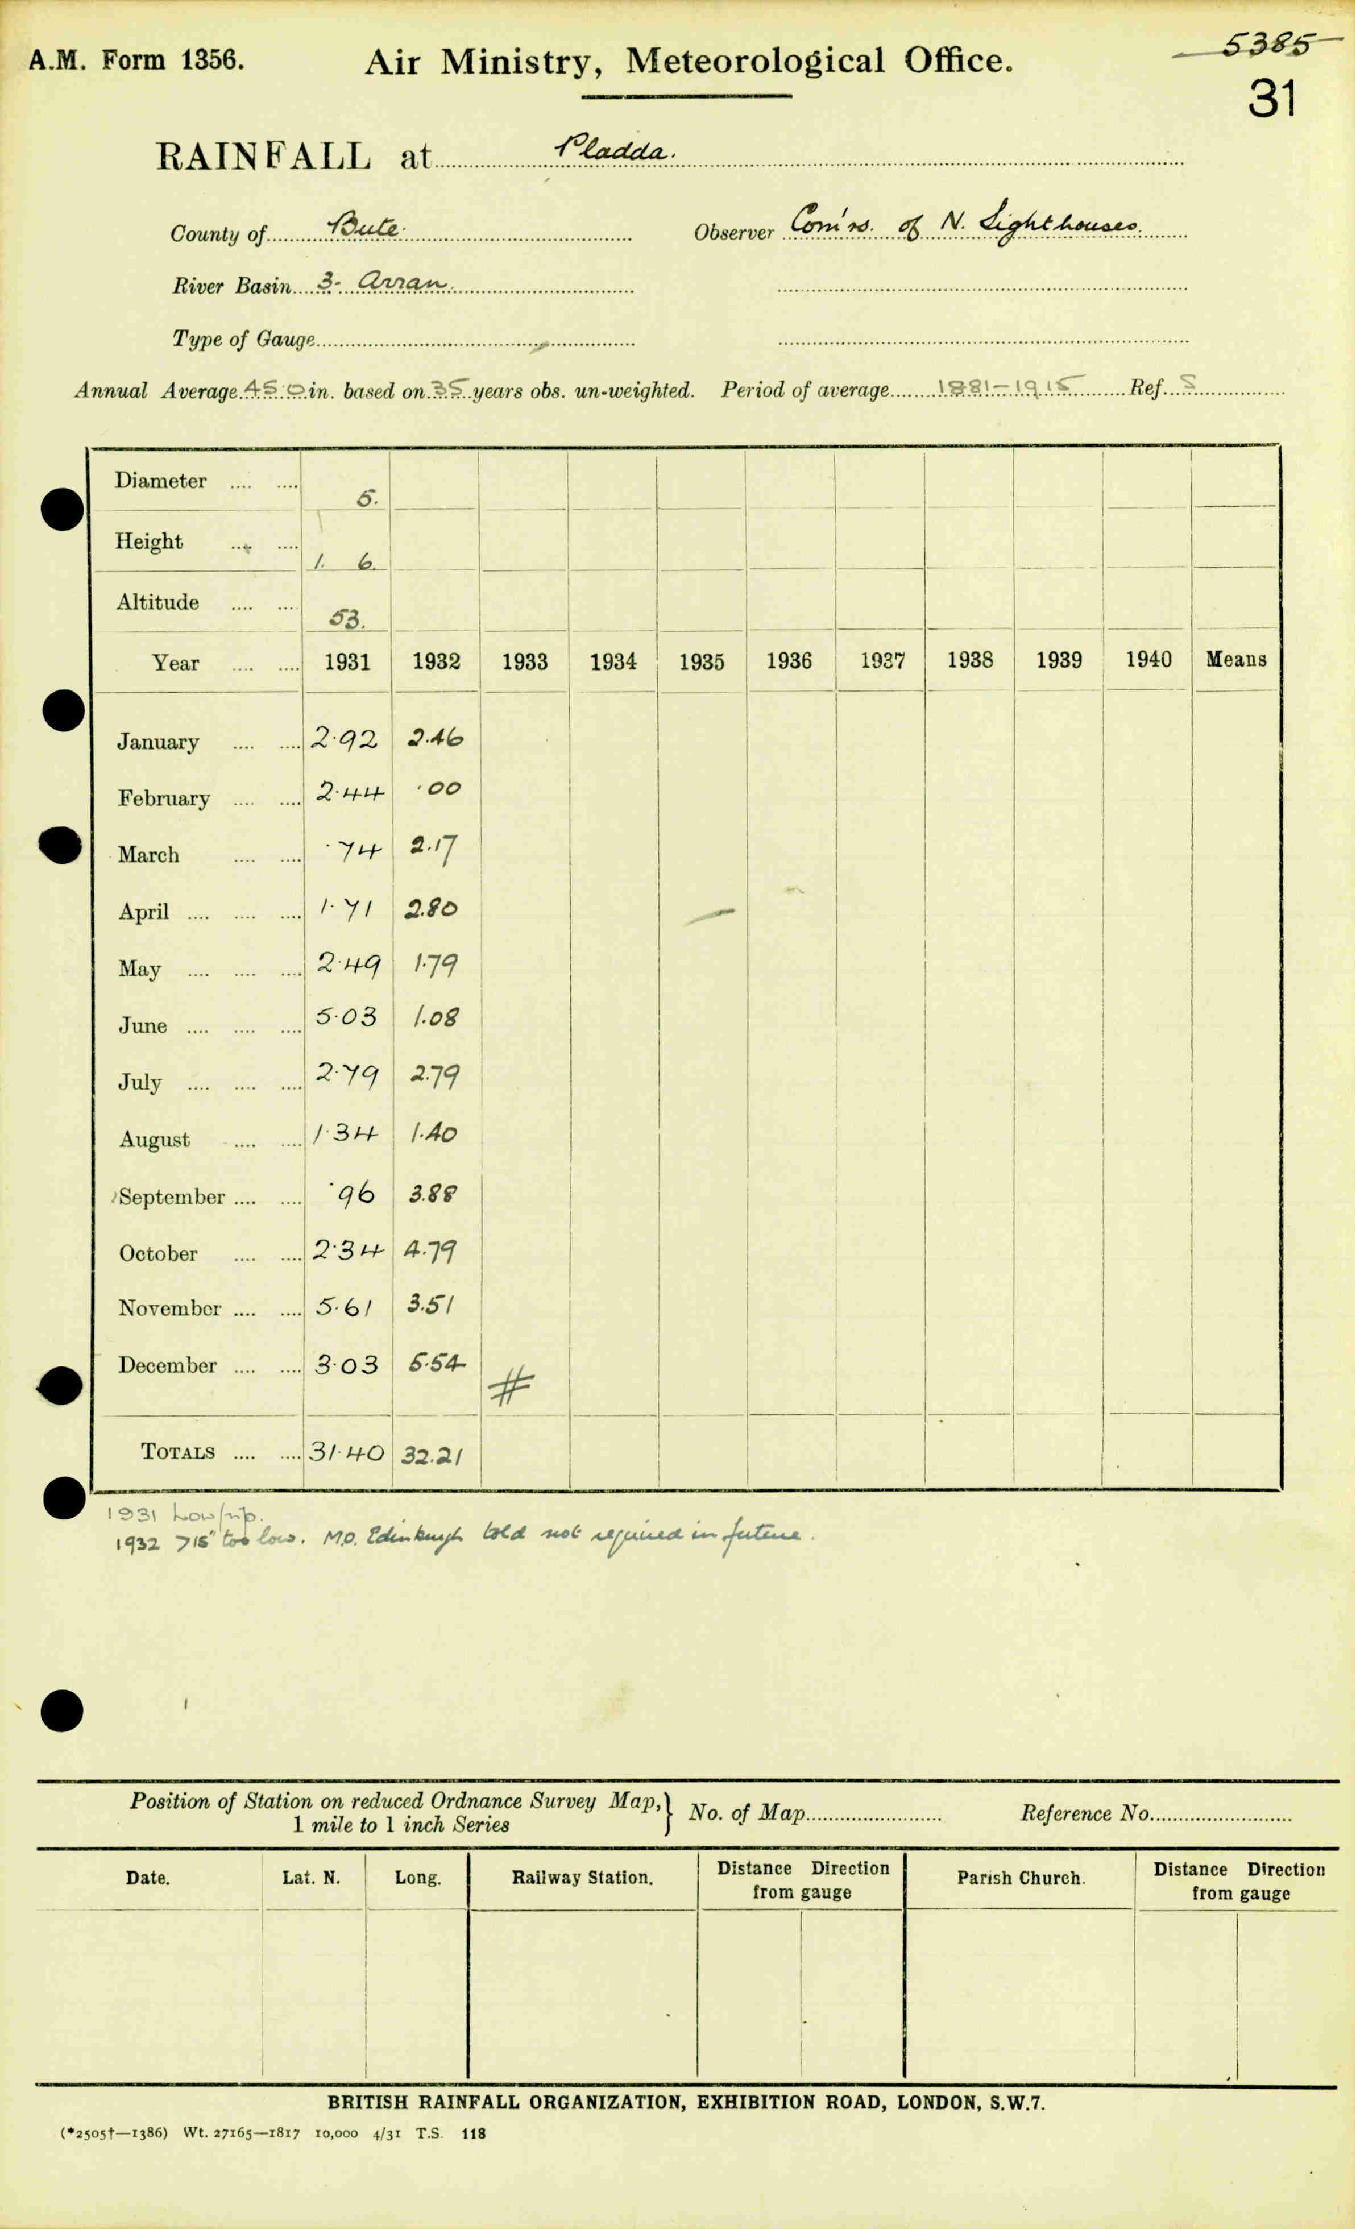 A.M. Form 1356.
Air Ministry, Meteorological Office.
5385
31
RAINFALL at Pladda.
County of Bute
Observer Com'rs. of N. Lighthouses.
River Basin 3- Arran.
Type of Gauge
Annual Average 45.0 in. based on 35 years obs. un-weighted. Period of average 1881-1915 Ref. S
Diameter .... .... 5.
Height .... .... 1. 6.
Altitude .... .... 53.
Year .... .... 1931 1932 1933 1934 1935 1936 1937 1938 1939 1940 Means
January .... .... 2.92 2.46
February .... .... 2.44 .00
March .... .... .74 2.17
April .... .... .... 1.71 2.80
May .... .... .... 2.49 1.79
June .... .... .... 5.03 1.08
July .... .... .... 2.79 2.79
August .... .... 1.34 1.40
September .... .... .96 3.88
October .... .... 2.34 4.79
November .... .... 5.61 3.51
December .... .... 3.03 5.54 #
TOTALS .... .... 31.40 32.21
1931 Low
1932 >15" too low. M.O. Edinburgh told not required in future.
Position of Station on reduced Ordnance Survey Map,} No. of Map Reference No.
1 mile to 1 inch Series
Date. Lat. N. Long. Railway Station. Distance Direction from gauge Parish Church. Distance Direction from gauge
BRITISH RAINFALL ORGANIZATION, EXHIBITION ROAD, LONDON, S.W.7.
(*2505†—1386) Wt. 27165—1817 10,000 4/31 T.S. 118